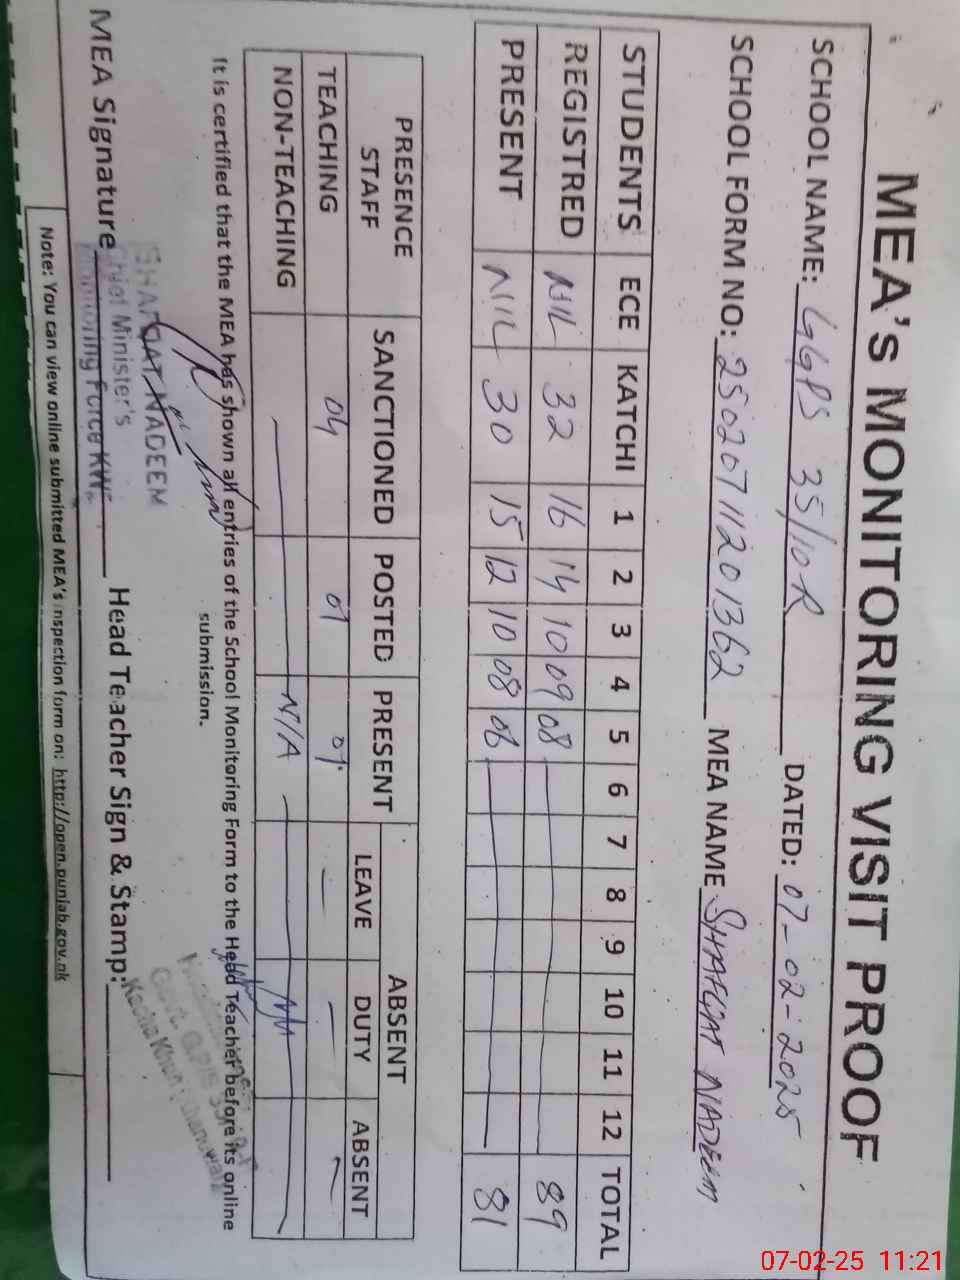 MEA's MONITORING VISIT PROOF
SCHOOL NAME: GGPS 35/10R DATED: 07-02-2025
SCHOOL FORM NO: 2502071120 1362 MEA NAME SHAFQAT NADEEM
STUDENTS ECE KATCHI 1 2 3 4 5 6 7 8 9 10 11 12 TOTAL
REGISTRED NIL 32 16 14 10 09 08 89
PRESENT NIL 30 15 12 10 08 06 81
PRESENCE STAFF SANCTIONED POSTED PRESENT ABSENT
LEAVE DUTY ABSENT
TEACHING 04
NON-TEACHING N/A
It is certified that the MEA has shown all entries of the School Monitoring Form to the Head Teacher before its online
submission.
SHAFQAT NADEEM
Chief Minister's
Monitoring Force KWL
MEA Signature Head Teacher Sign & Stamp:
Note: You can view online submitted MEA's inspection form on: http://open.punjab.gov.pk
07-02-25 11:21